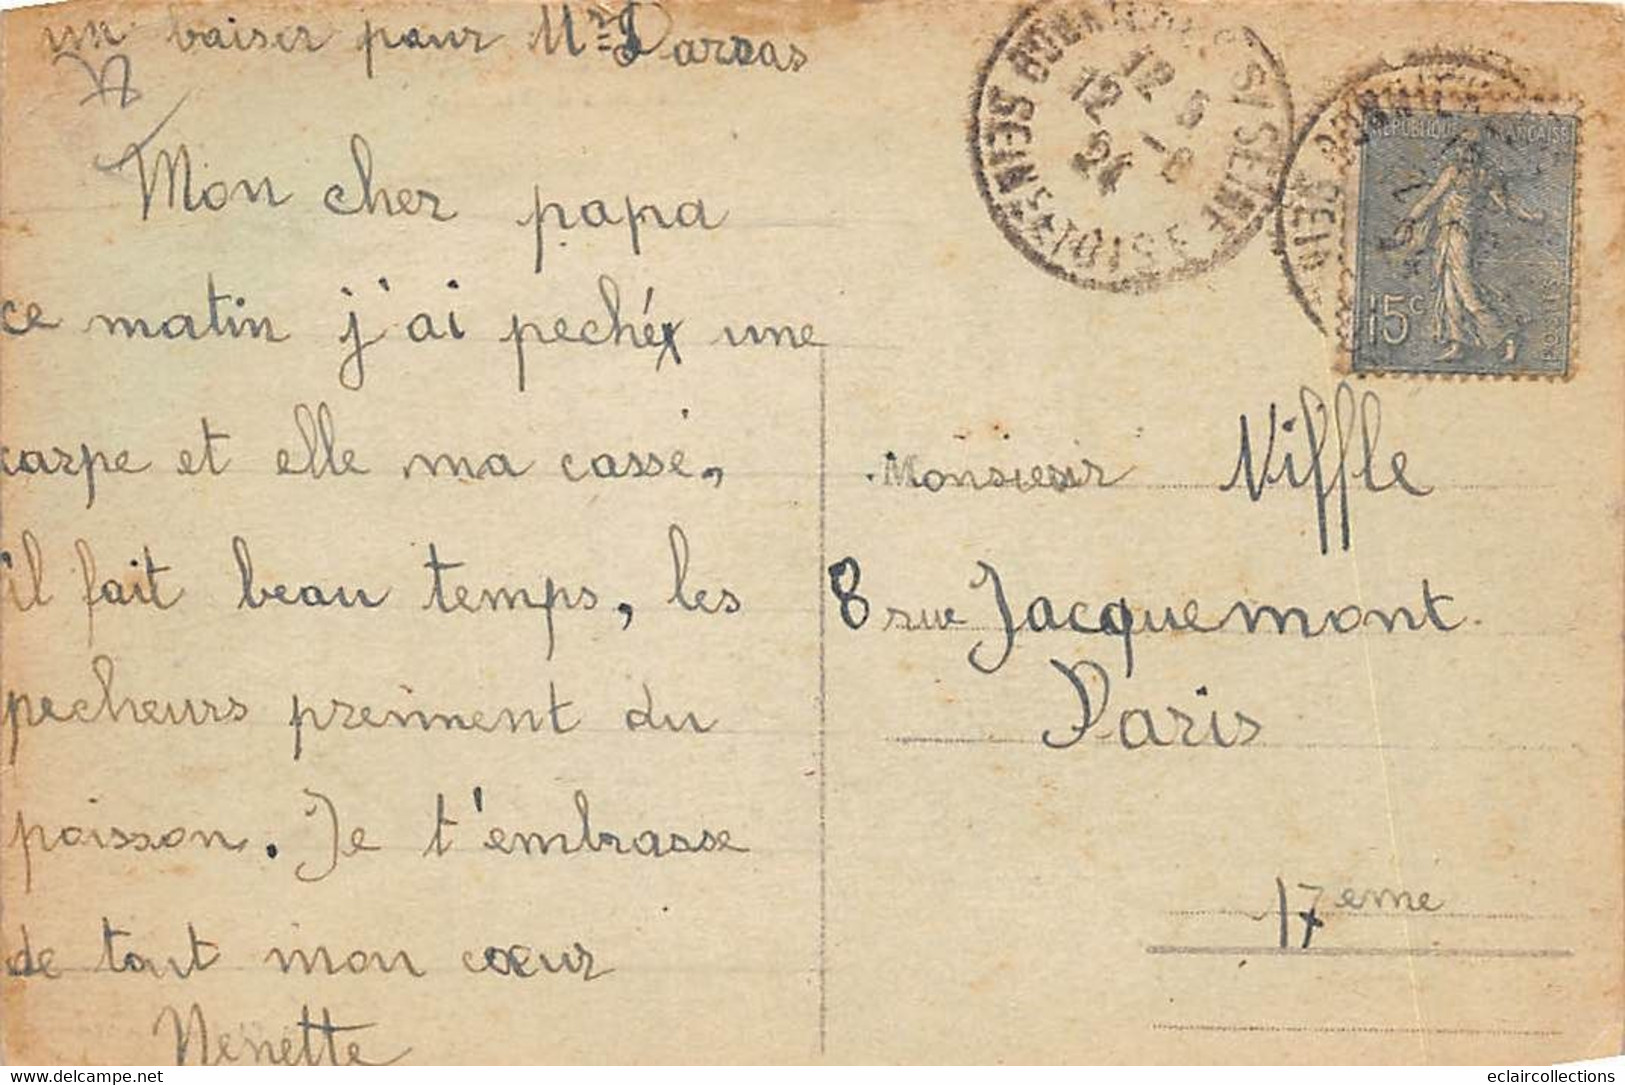 un baiser pour Mr Darras
Mon cher papa
ce matin j'ai peché une
carpe et elle ma cassé,
il fait beau temps, les
pecheurs prennent du
poisson. Je t'embrasse
de tout mon cœur
Nenette
SI SEINE
SEINE-ET-OISE
12 5
12 -8
24
RÉPUBLIQUE FRANÇAISE
15c
POSTES
Monsieur Niffle
8 rue Jacquemont
Paris
17eme
www.eclaircollections.com
eclaircollections